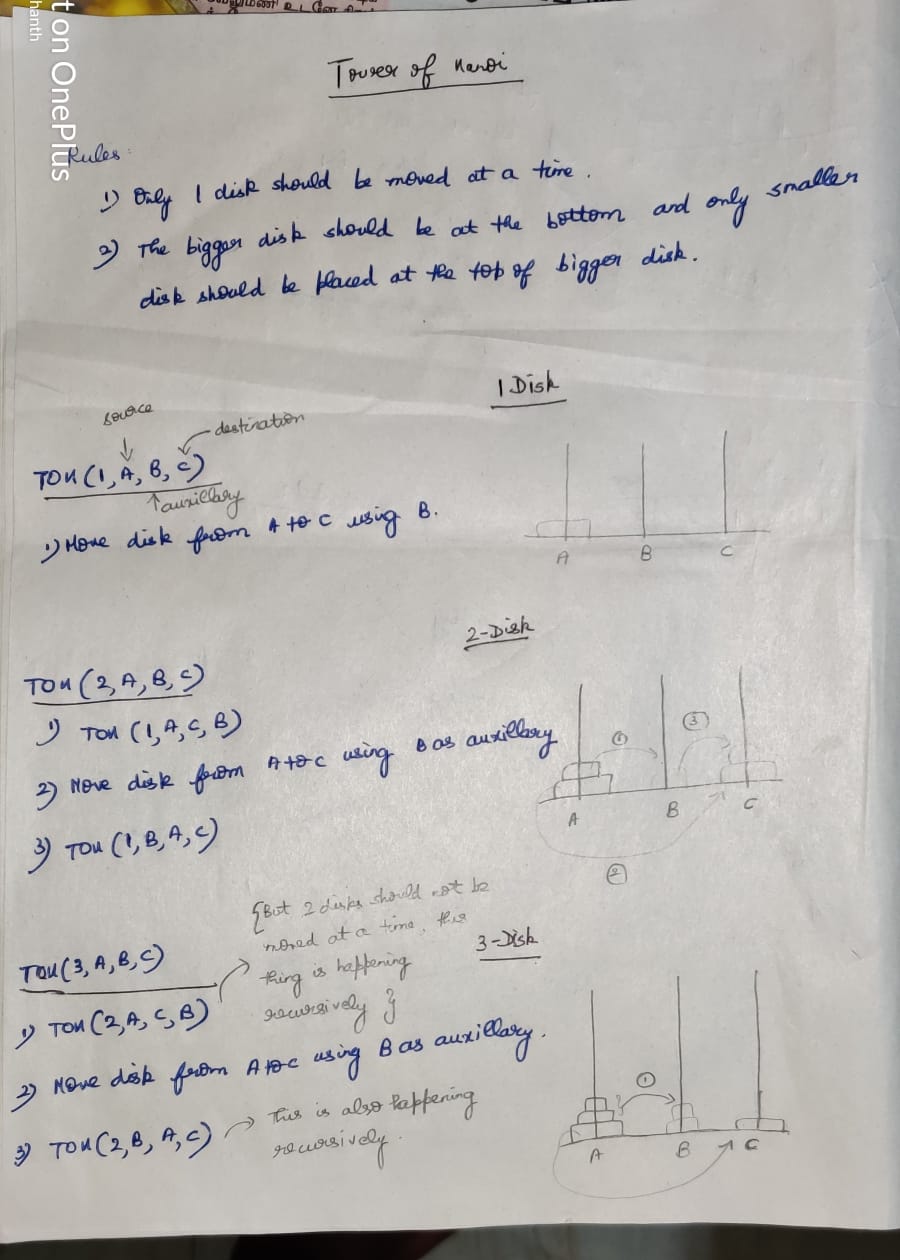 t on OnePlus
hanth
Tower of Hanoi
Rules :
1) Only 1 disk should be moved at a time .
2) The bigger disk should be at the bottom and only smaller
disk should be placed at the top of bigger disk.
1 Disk
source
destination
TOH (1, A, B, C)
auxillary
1) Move disk from A to C using B.
A B C
2-Disk
TOH (2, A, B, C)
1) TOH (1, A, C, B)
2) Move disk from A to C using B as auxillary
3) TOH (1, B, A, C)
1 3
A B C
2
{But 2 disks should not be
moved at a time, this
thing is happening
recursively }
3-Disk
TOH (3, A, B, C)
1) TOH (2, A, C, B)
2) Move disk from A to C using B as auxillary.
3) TOH (2, B, A, C)
This is also happening
recursively.
1
A B C